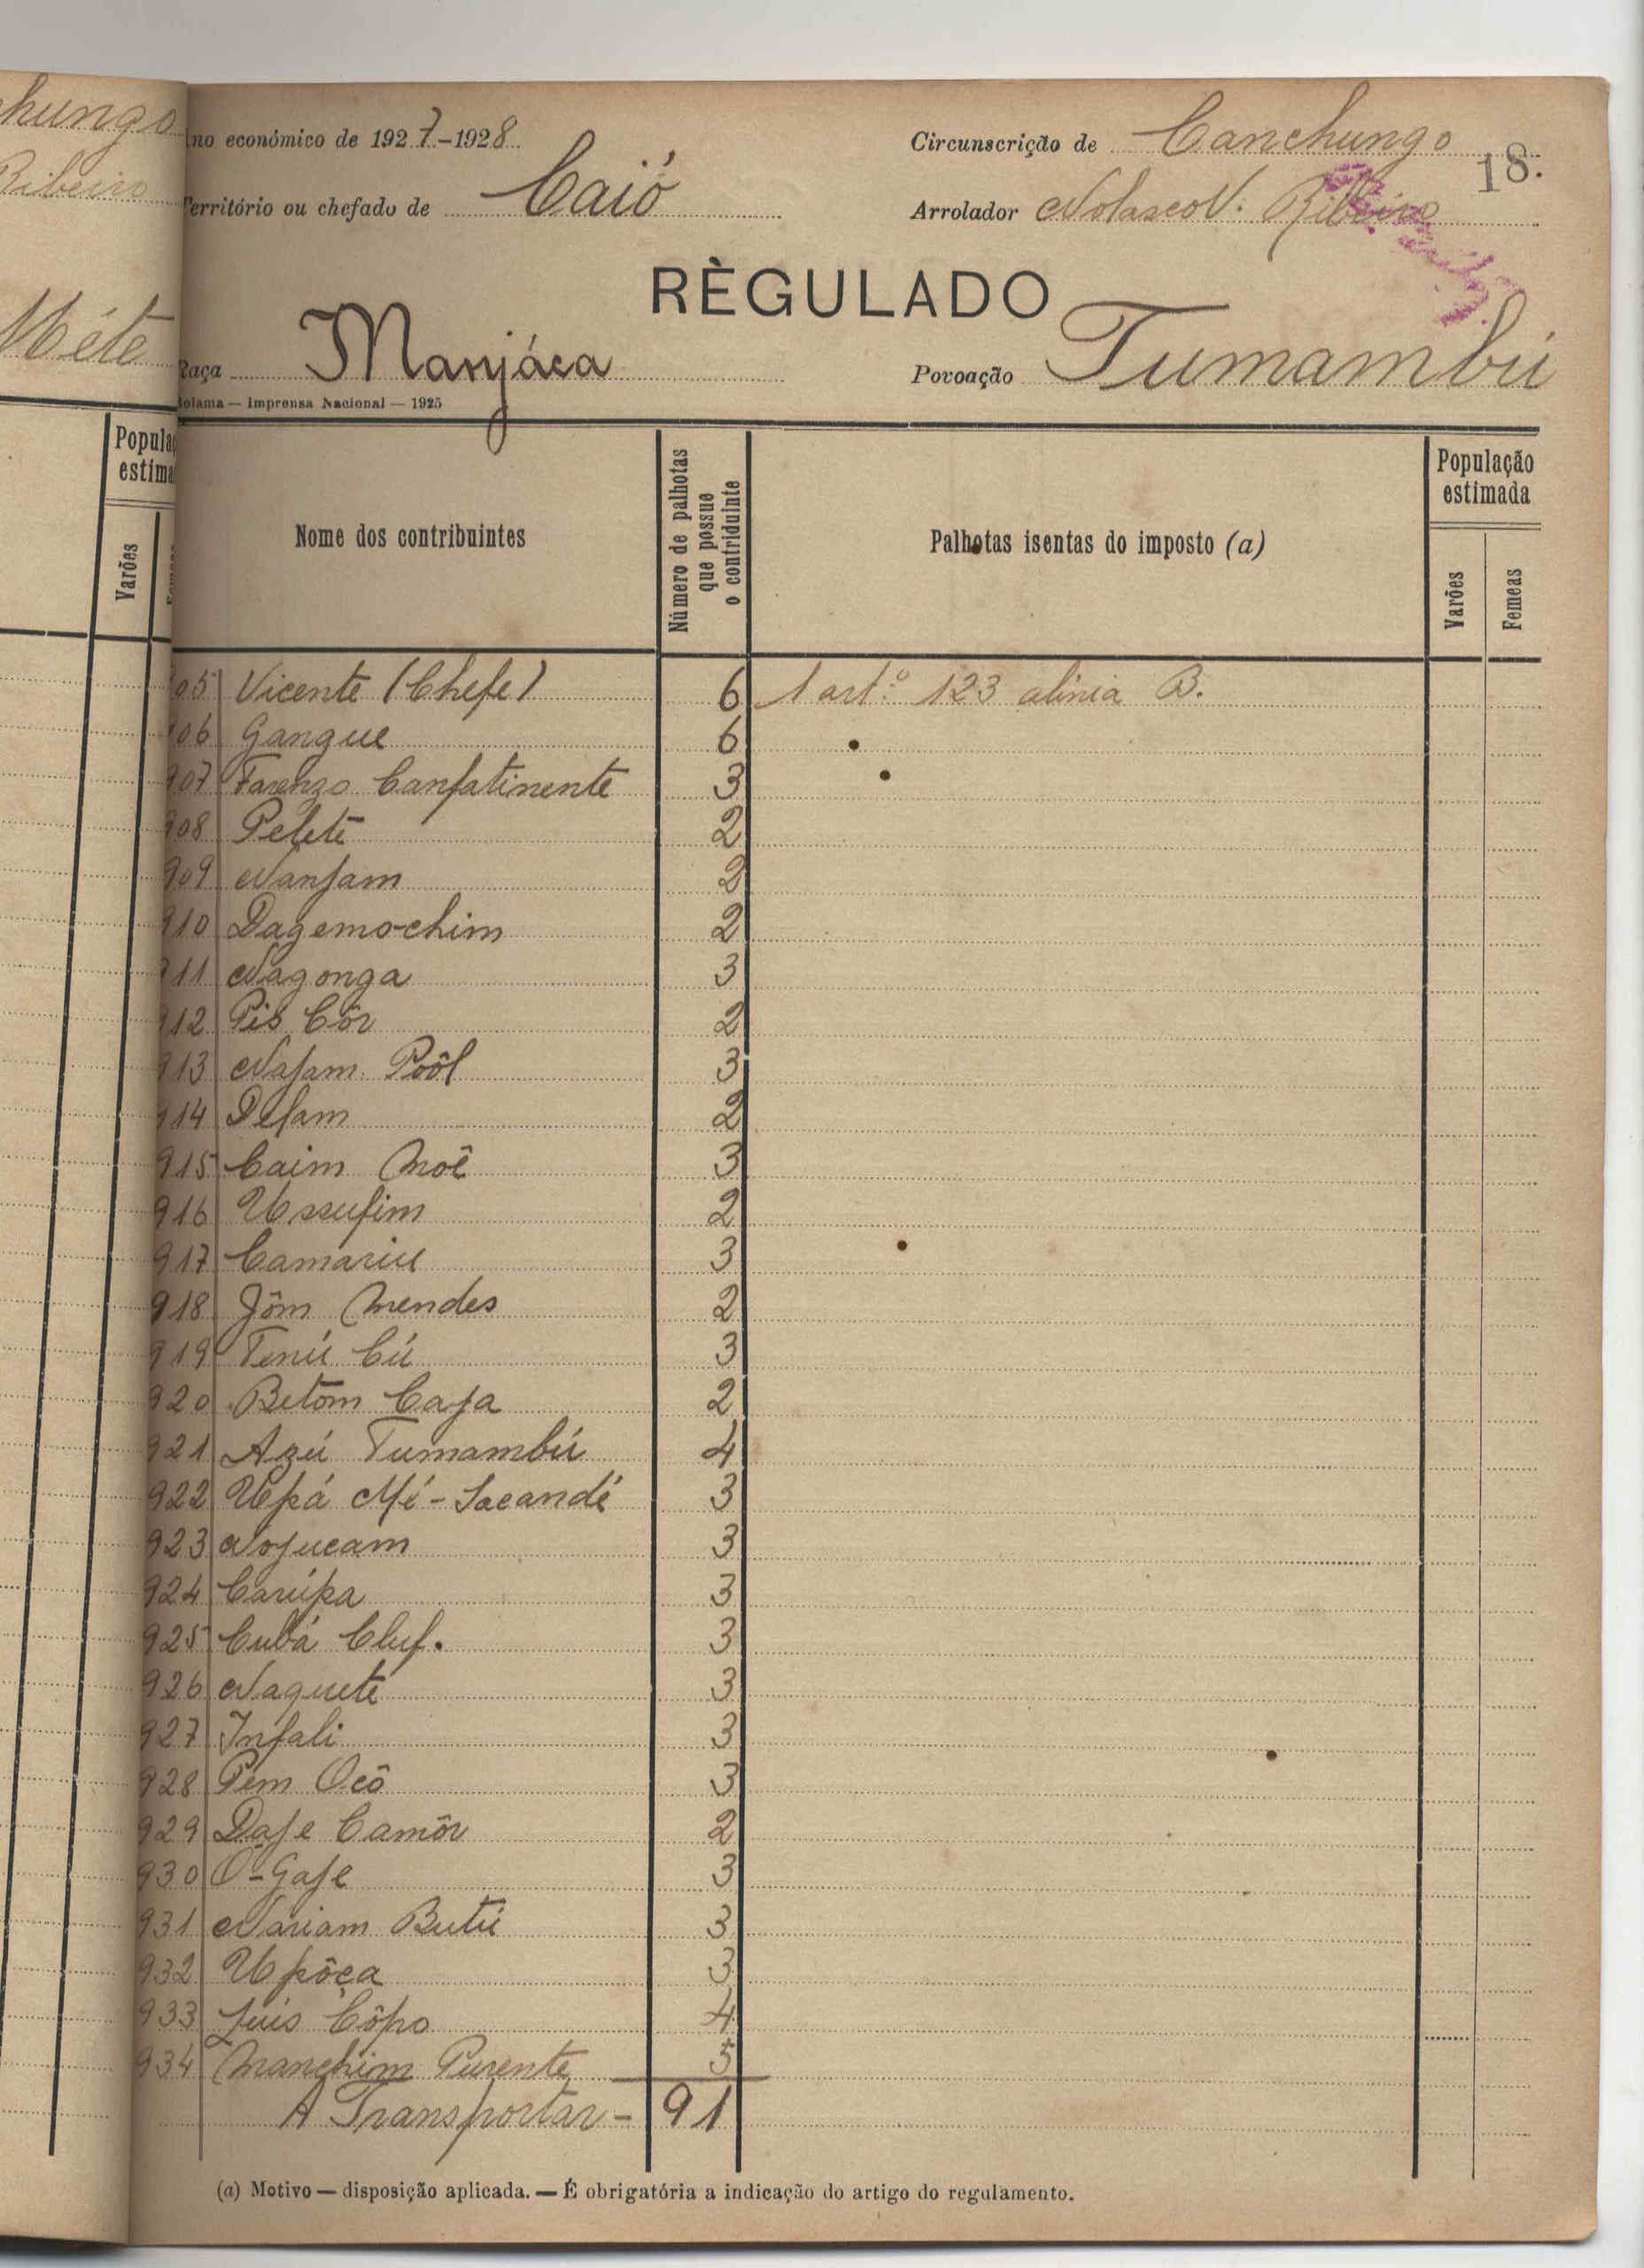 hungo
Ribeiro
Méte
Popula
estima
Varões
no económico de 1927-1928
Circunscrição de Canchungo
18.
Território ou chefado de Caió
Arrolador Nolasco V. Ribeiro
RÈGULADO
Raça Manjáca
Povoação Tumambú
Bolama — Imprensa Nacional — 1925
Nome dos contribuintes
Número de palhotas
que possue
o contriduinte
Palhotas isentas do imposto (a)
População
estimada
Varões
Femeas
905 Vicente (Chefe) 6 1 artº 123 alinia B.
906 Gangue 6
907 Farenzo Canfatinente 3
908 Pelete 2
909 Nanjam 2
910 Dagemochim 2
911 Nagonga 3
912 Pis Côr 2
913 Najam Poôl 3
914 Dejam 2
915 Caim Moê 3
916 Ussufim 2
917 Camariu 3
918 Jôm Mendes 2
919 Tenú Cú 3
920 Betom Caja 2
921 Azú Tumambú 4
922 Upá Mí-Sacandé 3
923 Nojucam 3
924 Carúpa 3
925 Cubá Cluf. 3
926 Naquete 3
927 Infali 3
928 Pem Ocô 3
929 Daje Camôr 2
930 O-Gaje 3
931 Nariam Butú 3
932 Upôça 3
933 Luis Côpo 4
934 Manchim Purente 5
A Transportar - 91
(a) Motivo — disposição aplicada. — É obrigatória a indicação do artigo do regulamento.